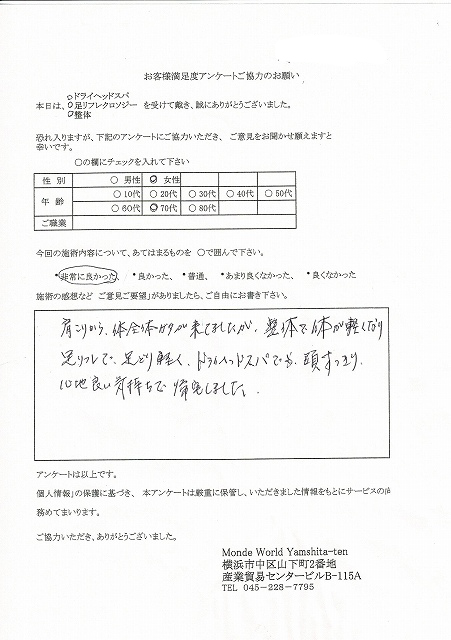 お客様満足度アンケートご協力のお願い
○ドライヘッドスパ
本日は、○足リフレクロソジー を受けて戴き、誠にありがとうございました。
○整体
恐れ入りますが、下記のアンケートにご協力いただき、 ご意見をお聞かせ願えますと
幸いです。
○の欄にチェックを入れて下さい
性 別 ○ 男性 ○ 女性
年 齢 ○10代 ○20代 ○30代 ○40代 ○50代
○60代 ○70代 ○80代
ご職業
今回の施術内容について、あてはまるものを ○で囲んで下さい。
・非常に良かった、 ・良かった、 ・普通、 ・あまり良くなかった、 ・良くなかった
施術の感想など ご意見ご要望」がありましたら、ご自由にお書き下さい。
肩こりから、体全体が来てましたが、整体で体が軽くなり
足リフレで、足どり軽く、ドライヘッドスパでは、頭すっきり、
心地良い気持ちで帰宅しました。
アンケートは以上です。
個人情報」の保護に基づき、 本アンケートは厳重に保管し、いただきました情報をもとにサービスの
務めてまいります。
ご協力いただき、ありがとうございました。
Monde World Yamshita-ten
横浜市中区山下町2番地
産業貿易センタービルB-115A
TEL 045-228-7795